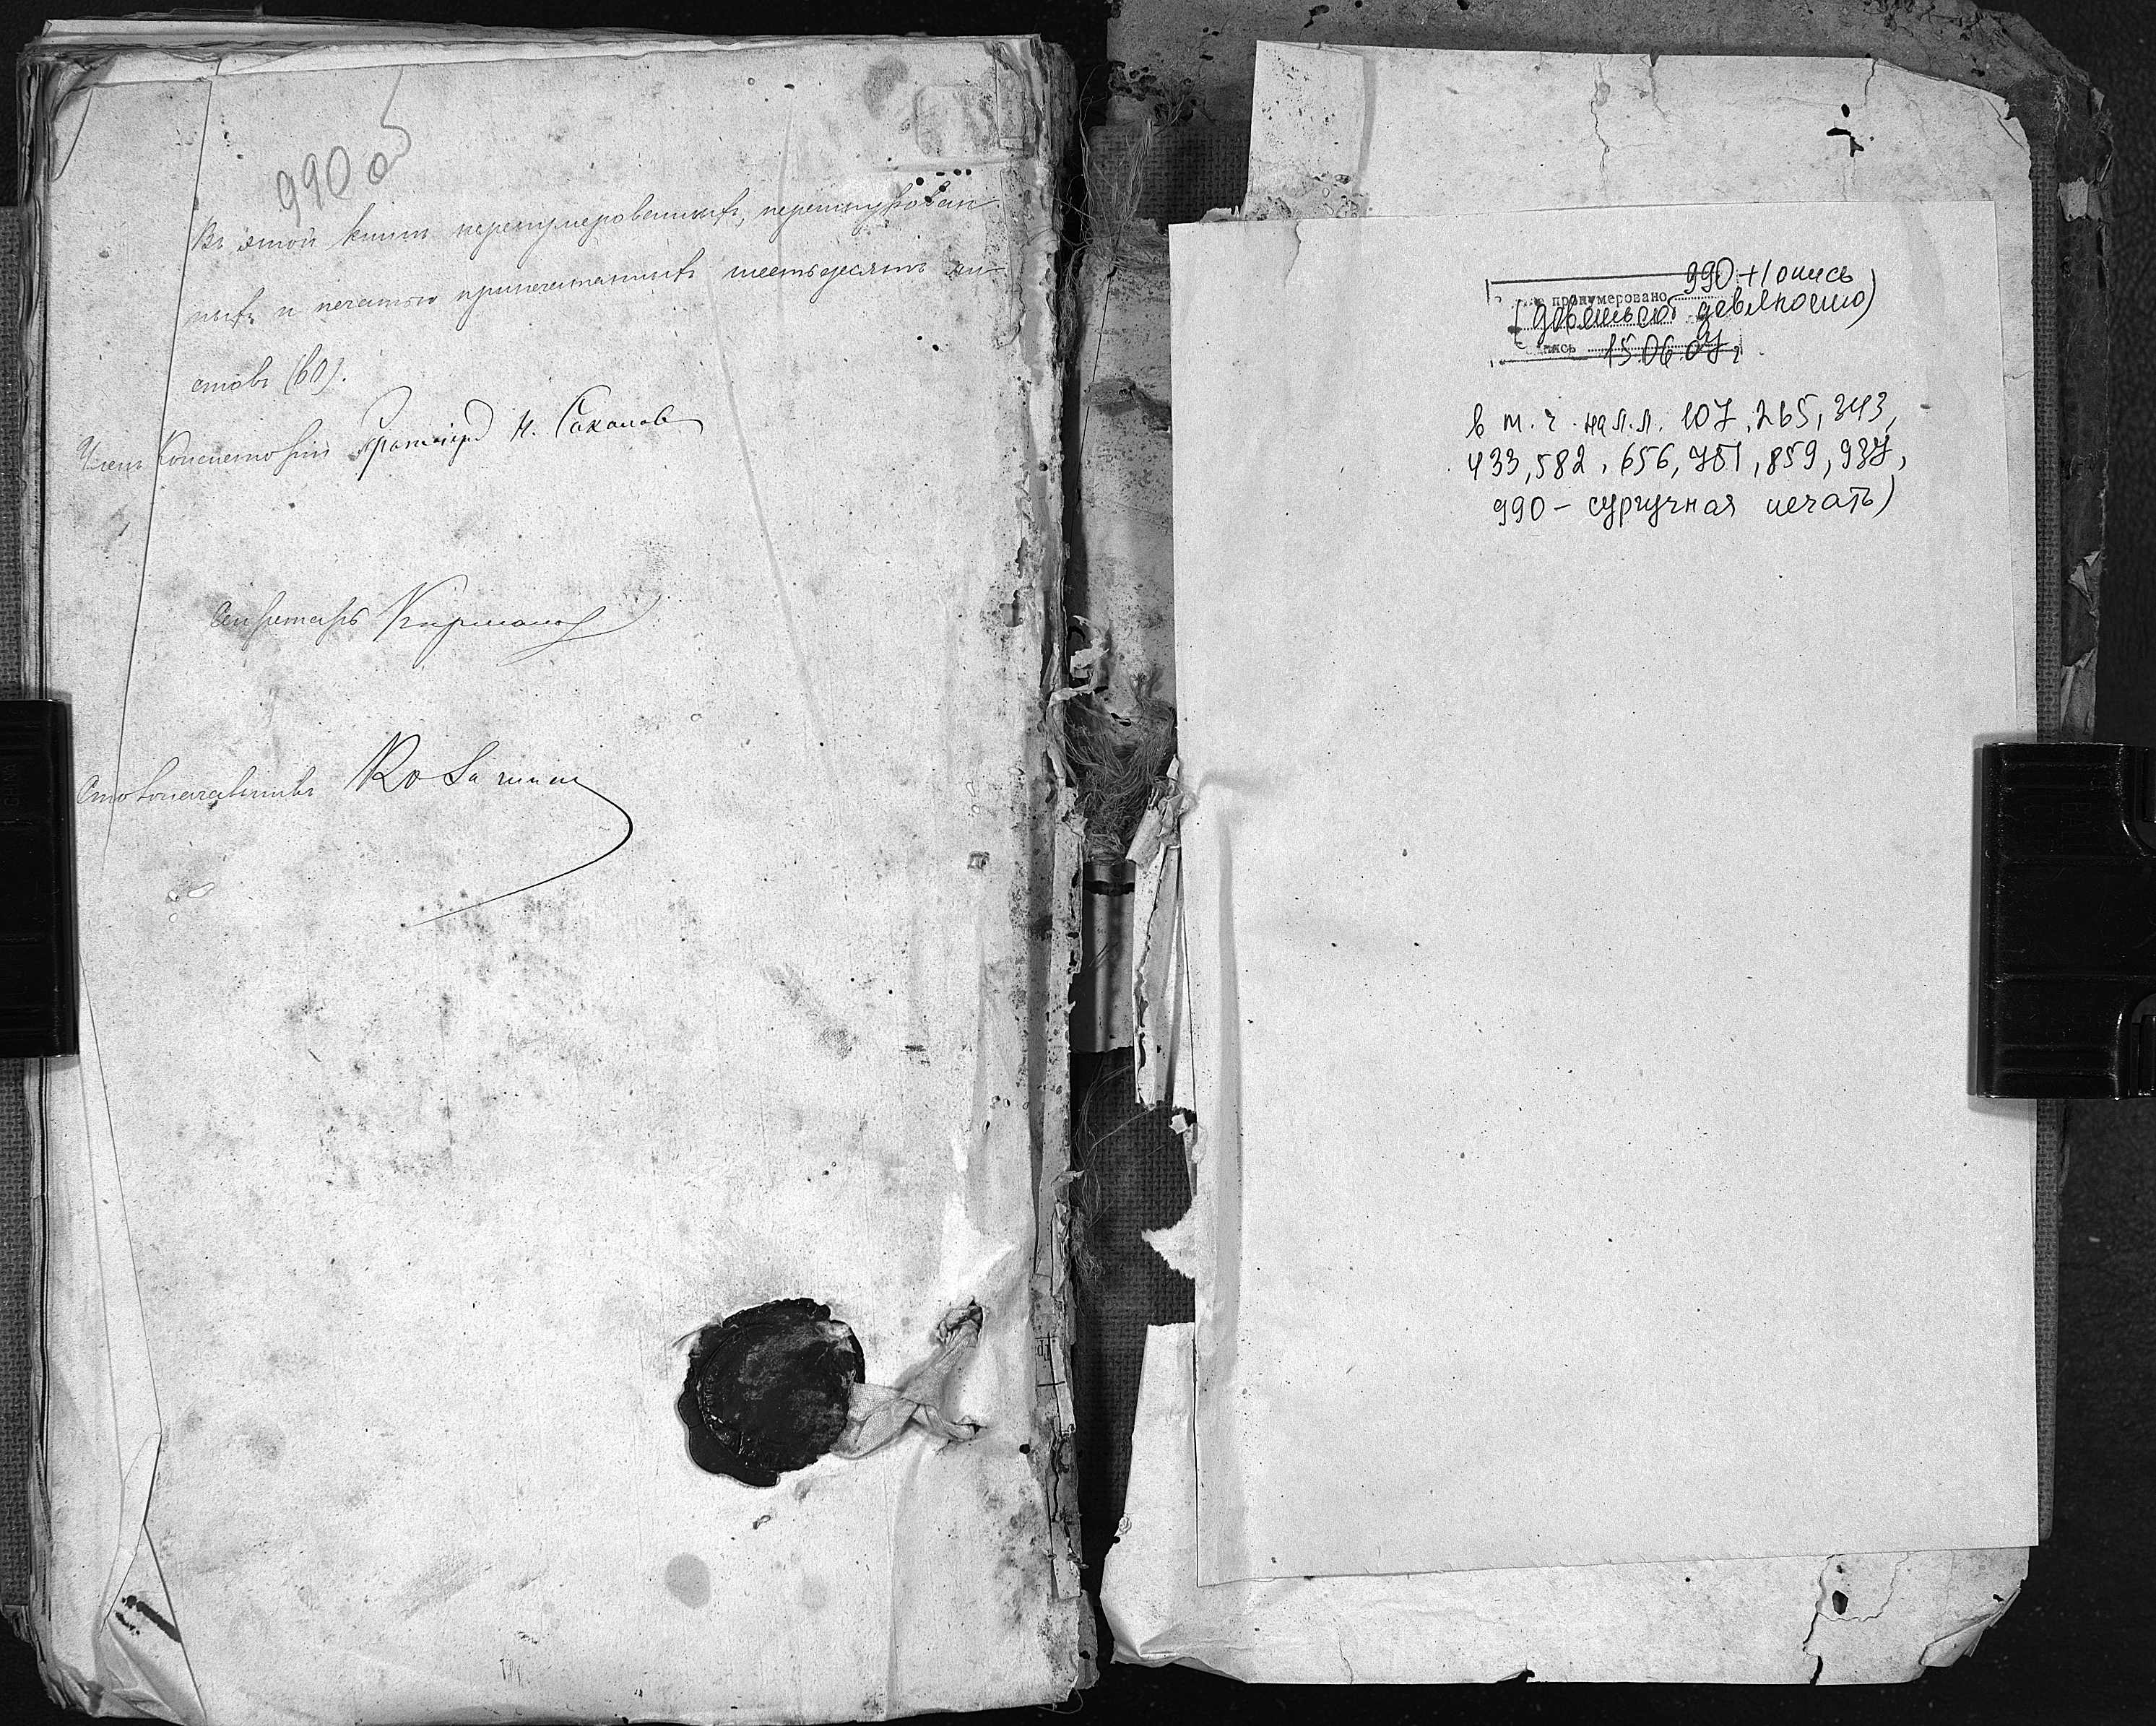 990 об
Въ этой книгѣ перенумерованныхъ, перешнурован-
ныхъ и печатью припечатанныхъ шестьдесятъ ли-
стовъ (60).
Членъ Консисторіи Протоіерей Н. Соколовъ
Секретарь
Столоначальникъ
990 + 1 опись
пронумеровано
(девятьсот девяносто)
15.06.07г
в т. ч. на л.л. 107, 265, 343,
433, 582, 656, 751, 859, 937,
990 – сургучная печать)